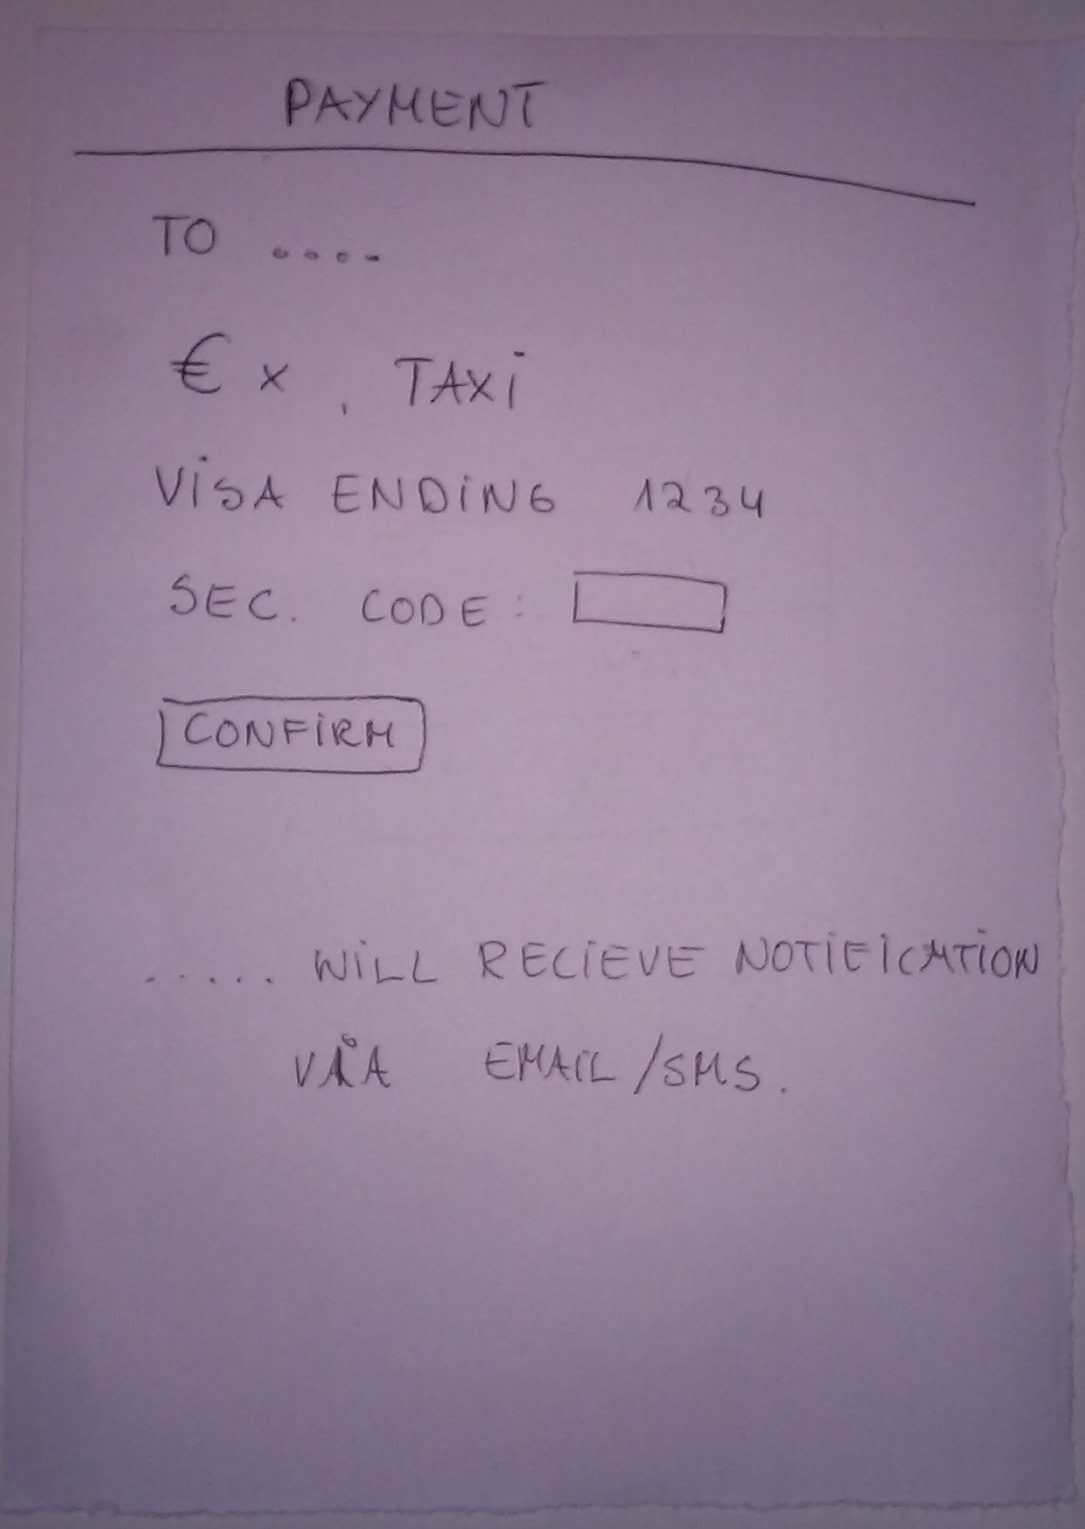 PAYMENT
TO ....
€ x , TAXi
ViSA ENDiNG 1234
SEC. CODE:
CONFiRM
...... WiLL RECiEVE NOTiFiCATiON
ViA EMAIL/SMS.